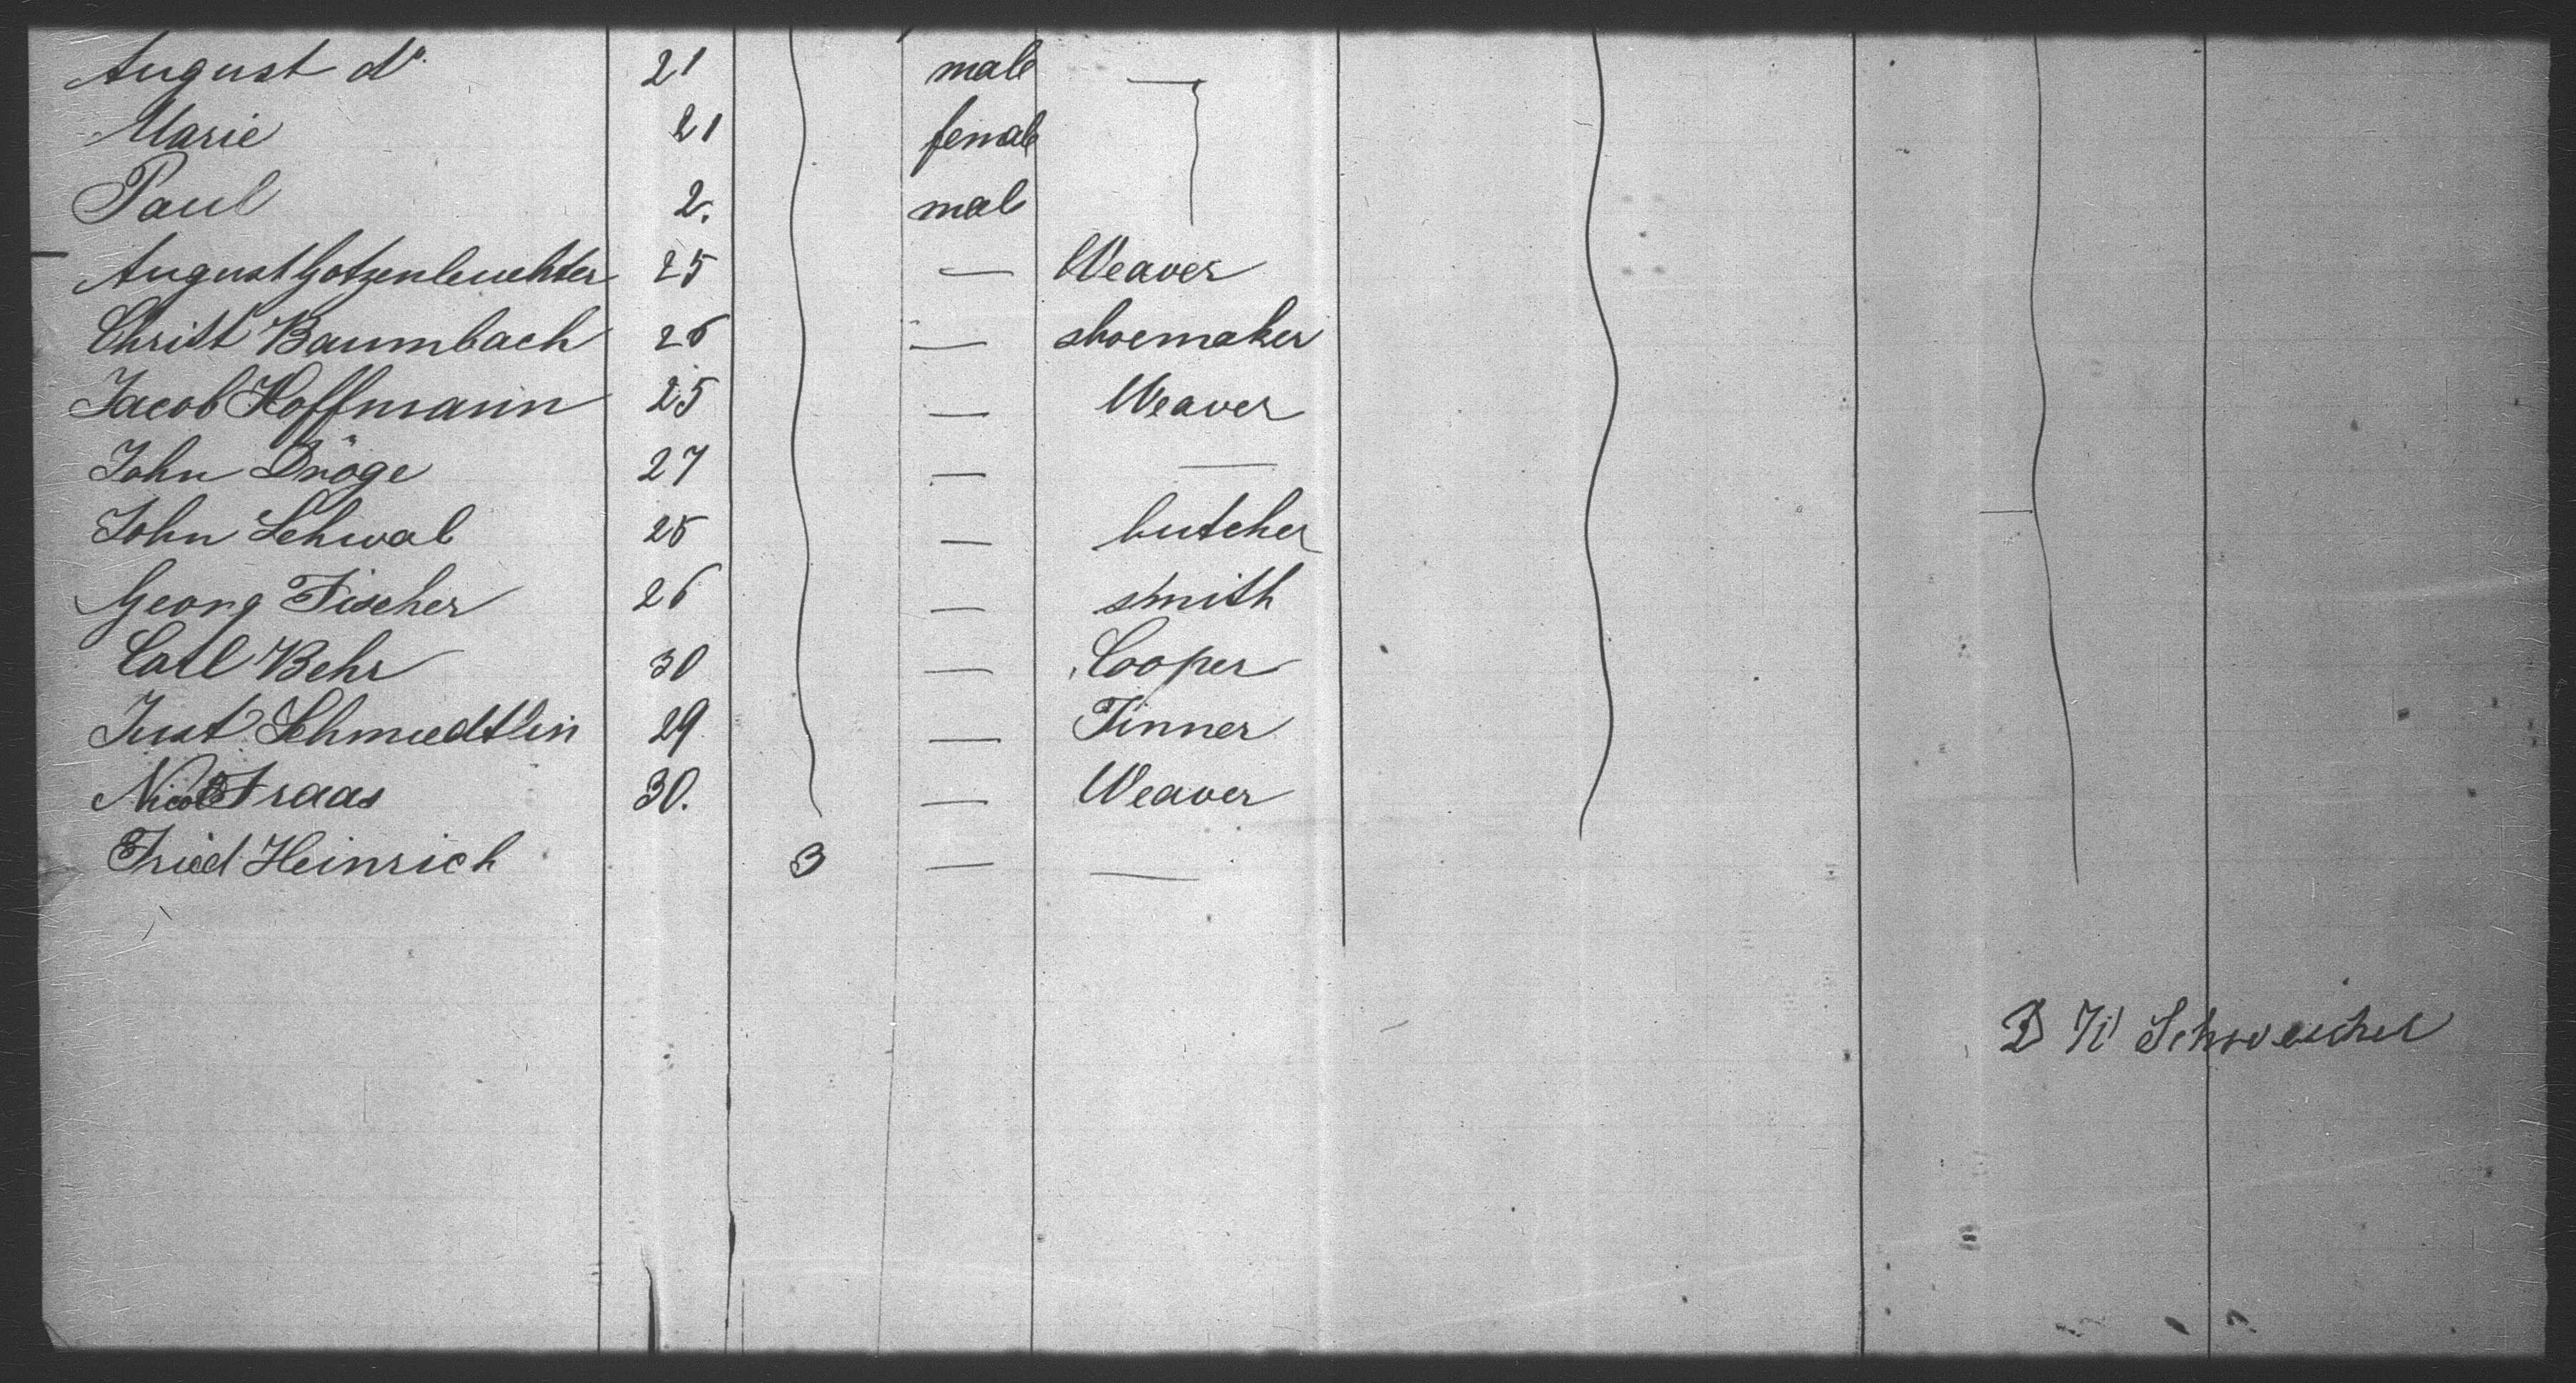 August do 21 male —
Marie 21 female
Paul 2. male
August Gotzenleuchter 25 — Weaver
Christ Baumbach 26 — shoemaker
Jacob Hoffmann 25 — Weaver
John Dröge 27 — —
John Schwab 25 — butcher
Georg Fischer 26 — smith
Carl Behr 30 — Cooper
Just Schmiedtlin 29 — Tinner
Fraas 30. — Weaver
Fried Heinrich 3 — —
D H Schweicher